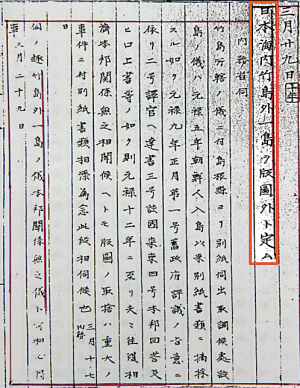 三月廿九日 十年
日本海内竹島外一島ヲ版圖外ト定ム
内務省伺
竹島所轄ノ儀ニ付島根縣ヨリ別紙伺出取調候處該
島ノ儀ハ元禄五年朝鮮人入島以来別紙書類ニ摘採
スル如ク元禄九年正月第一号舊政府評議ノ旨意ニ
依リ二号譯官ヘ達書三号該國来柬四号本邦回答及
ヒ口上書等ノ如ク則元禄十二年ニ至リ夫々往復相
濟本邦関係無之相聞候ヘトモ版圖ノ取捨ハ重大ノ
事件ニ付別紙書類相添為念此段相伺候也 三月十七
日 内務
伺ノ趣竹島外一島ノ儀本邦関係無之儀ト可相心得
事 三月二十九日